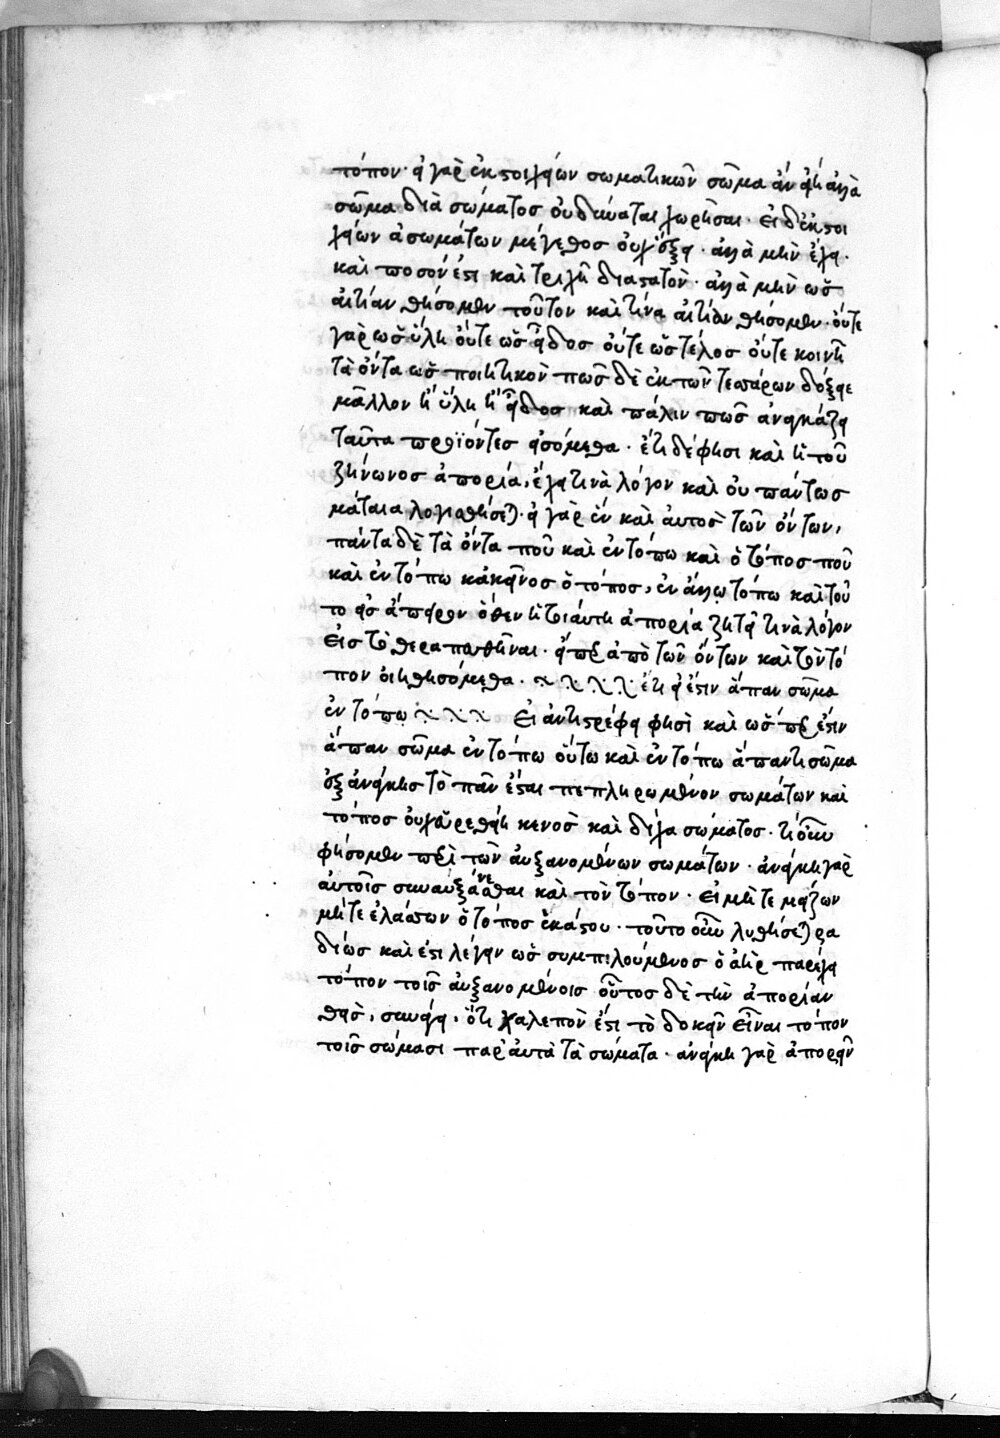 τόπον· εἰ γὰρ ἐκ στοιχείων σωματικῶν σῶμα ἂν εἴη ἀλλὰ
σῶμα διὰ σώματος οὐ δύναται χωρῆσαι· εἰ δ' ἐκ στοι
χείων ἀσωμάτων μέγεθος οὐχ ἕξει· ἀλλὰ μὴν ἔχει·
καὶ ποσόν ἐστι καὶ τριχῆ διαστατὸν· ἀλλὰ μὴν ὡς
αἰτίαν θήσομεν τοῦτον καὶ τίνα αἰτίαν θήσομεν· οὔτε
γὰρ ὡς ὕλη οὔτε ὡς εἶδος οὔτε ὡς τέλος οὔτε κοινῆ
τὰ ὄντα ὡς ποιητικὸν πῶς δὲ ἐκ τῶν τεσσάρων δόξειε
μᾶλλον ἢ ὕλη ἢ εἶδος καὶ πάλιν πῶς ἀναγκάζει
ταῦτα προϊόντες εἰσόμεθα· ἔτι δέ φησι καὶ ἡ τοῦ
ζήνωνος ἀπορία, ἔχει τινὰ λόγον καὶ οὐ πάντως
μάταια λογισθήσεται· εἰ γὰρ ἓν καὶ αὐτὸς τῶν ὄντων,
πάντα δὲ τὰ ὄντα ποῦ καὶ ἐν τόπω καὶ ὁ τόπος ποῦ
καὶ ἐν τόπω κἀκεῖνος ὁ τόπος, ἐν ἄλλω τόπω καὶ τοῦ
το εἰς ἄπειρον ὅθεν ἡ τοιαύτη ἀπορία ζητεῖ τινὰ λόγον
εἰς τὸ θεραπευθῆναι· εἴπερ ἀπὸ τῶν ὄντων καὶ τὸν τό
πον οἰηθησόμεθα· ἔτι εἰ ἔστιν ἅπαν σῶμα
ἐν τόπω Εἰ ἀντιστρέφει φησὶ καὶ ὥσπερ ἔστιν
ἅπαν σῶμα ἐν τόπω οὕτω καὶ ἐν τόπω ἅπαντι σῶμα
ἐξ ἀνάγκης τὸ πᾶν ἔσται πεπληρωμένον σωμάτων καὶ
τόπος οὐχ εὑρεθείη κενὸς καὶ δίχα σώματος· τί οὖν
φήσομεν περὶ τῶν αὐξανομένων σωμάτων· ἀνάγκη γὰρ
αὐτοῖς συναυξάνεσθαι καὶ τὸν τόπον· εἰ μήτε μείζων
μήτε ἐλάσσων ὁ τόπος ἑκάστου· τοῦτο οὖν λυθήσεται ρα
δίως καὶ ἔστι λέγειν ὡς συμπιλούμενος ὁ ἀὴρ παρέχει
τόπον τοῖς αὐξανομένοις οὗτος δὲ τὴν ἀπορίαν
θεὶς, συνάγει· ὅτι χαλεπὸν ἐστι τὸ δοκεῖν εἶναι τόπον
τοῖς σώμασι παρ' αὐτὰ τὰ σώματα· ἀνάγκη γὰρ ἀπορεῖν